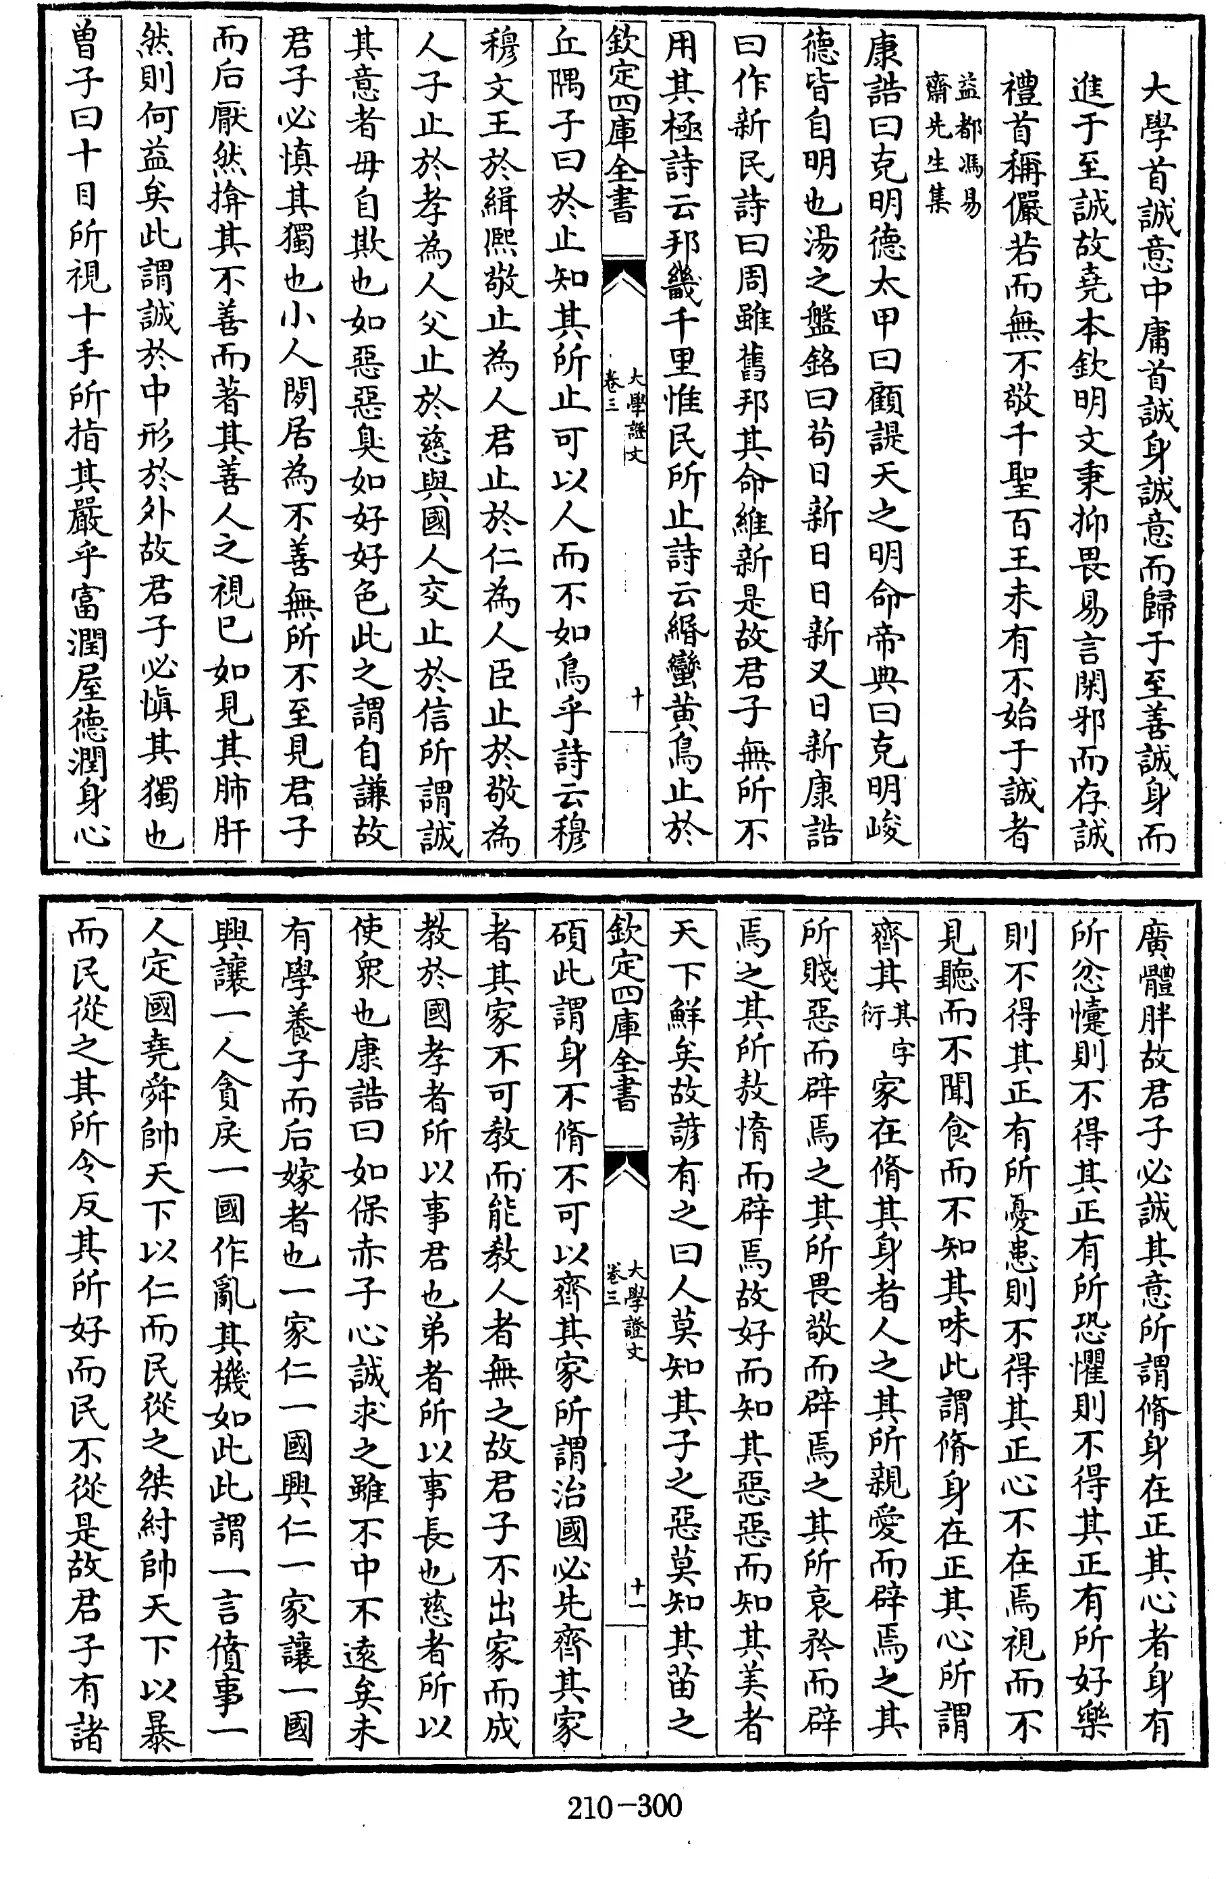 大學首誠意中庸首誠身誠意而歸于至善誠身而
進于至誠故堯本欽明文秉抑畏易言閑邪而存誠
禮首稱儼若而無不敬千聖百王未有不始于誠者
益都馮易
齋先生集
康誥曰克明德太甲曰顧諟天之明命帝典曰克明峻
德皆自明也湯之盤銘曰苟日新日日新又日新康誥
曰作新民詩曰周雖舊邦其命維新是故君子無所不
用其極詩云邦畿千里惟民所止詩云緡蠻黃鳥止於
欽定四庫全書
大學證文
卷三
十
丘隅子曰於止知其所止可以人而不如鳥乎詩云穆
穆文王於緝熙敬止為人君止於仁為人臣止於敬為
人子止於孝為人父止於慈與國人交止於信所謂誠
其意者毋自欺也如惡惡臭如好好色此之謂自謙故
君子必慎其獨也小人閒居為不善無所不至見君子
而后厭然揜其不善而著其善人之視已如見其肺肝
然則何益矣此謂誠於中形於外故君子必慎其獨也
曾子曰十目所視十手所指其嚴乎富潤屋德潤身心
廣體胖故君子必誠其意所謂脩身在正其心者身有
所忿懥則不得其正有所恐懼則不得其正有所好樂
則不得其正有所憂患則不得其正心不在焉視而不
見聽而不聞食而不知其味此謂脩身在正其心所謂
齊其其字衍家在脩其身者人之其所親愛而辟焉之其
所賤惡而辟焉之其所畏敬而辟焉之其所哀矜而辟
焉之其所敖惰而辟焉故好而知其惡惡而知其美者
天下鮮矣故諺有之曰人莫知其子之惡莫知其苗之
欽定四庫全書
大學證文
卷三
十一
碩此謂身不脩不可以齊其家所謂治國必先齊其家
者其家不可教而能教人者無之故君子不出家而成
教於國孝者所以事君也弟者所以事長也慈者所以
使衆也康誥曰如保赤子心誠求之雖不中不遠矣未
有學養子而后嫁者也一家仁一國興仁一家讓一國
興讓一人貪戾一國作亂其機如此此謂一言僨事一
人定國堯舜帥天下以仁而民從之桀紂帥天下以暴
而民從之其所令反其所好而民不從是故君子有諸
210-300